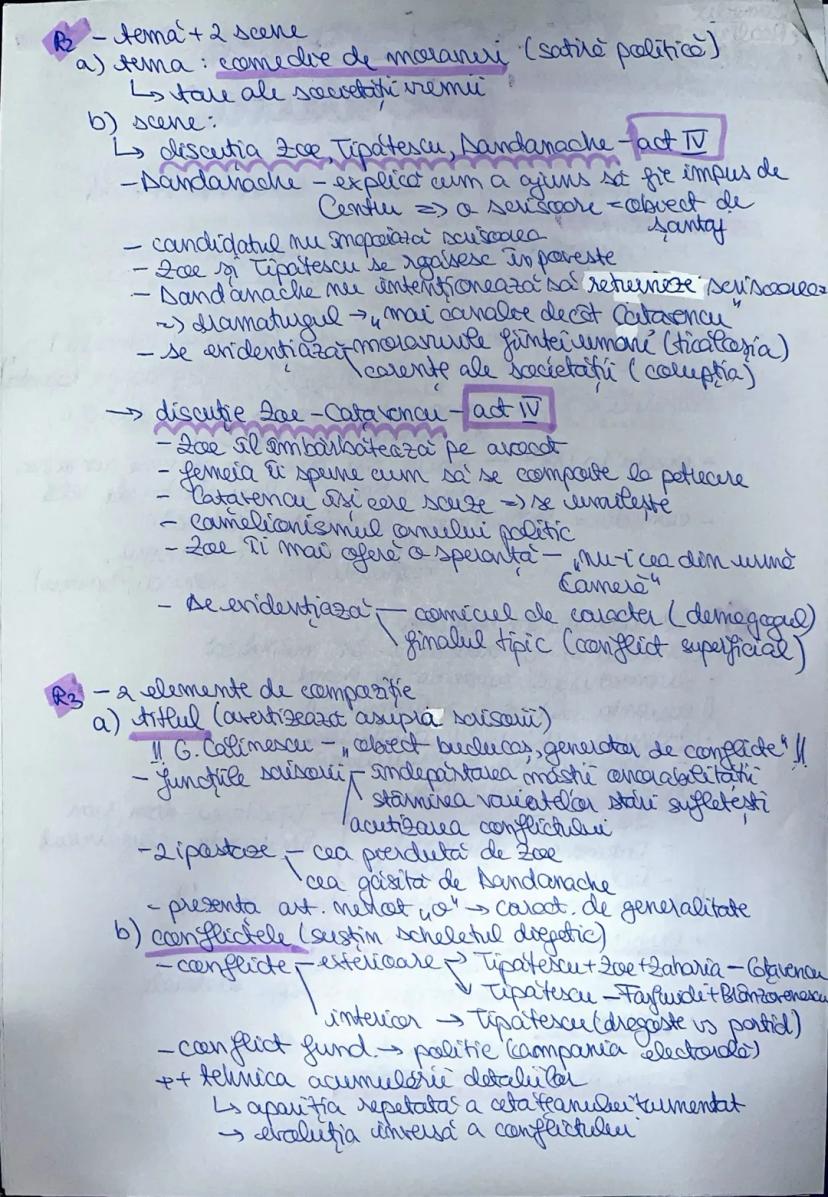 R2 - temă + 2 scene
a) tema: comedie de moravuri (satiră politică)
↳ tare ale societății vremii
b) scene:
↳ discuția Zoe, Tipătescu, Dandanache - act IV
- Dandanache - explică cum a ajuns să fie impus de
Centru => o scrisoare = obiect de
șantaj
- candidatul nu înapoiază scrisoarea
- Zoe și Tipătescu se rgăsesc în poveste
- Dandanache nu intenționează să returneze scrisoarea
=> dramaturgul → „mai canalie decât Cațavencu"
- se evidențiază moravurile ființei umane (ticăloșia)
carențe ale societății (corupția)
→ discuție Zoe - Cațavencu - act IV
- Zoe îl îmbărbătează pe avocat
- femeia îi spune cum să se comporte la petrecere
- Cațavencu își cere scuze => se umilește
- camelionismul omului politic
- Zoe îi mai oferă o speranță - „nu-i cea din urmă
Cameră"
- se evidențiază comicul de caracter (demagogul)
finalul tipic (conflict superficial)
R3 - 2 elemente de compoziție
a) titlul (avertizează asupra scrisorii)
|| G. Călinescu - „obiect buclucaș, generator de conflicte" ||
- funcțiile scrisorii - îndepărtarea măștii onorabilității
stârnirea variatelor stări sufletești
acutizarea conflictului
- 2 ipostaze - cea pierdută de Zoe
cea găsită de Dandanache
- prezența art. nehot „o" → caract. de generalitate
b) conflictele (susțin scheletul diegetic)
- conflicte - exterioare → Tipătescu + Zoe + Zaharia - Cațavencu
↘ Tipătescu - Farfuridi + Brânzovenescu
interior → Tipătescu (dragoste vs partid)
- conflict fund. → politic (campania electorală)
++ tehnica acumulării detaliilor
↳ apariția repetată a cetățeanului turmentat
→ evoluția inversă a conflictului